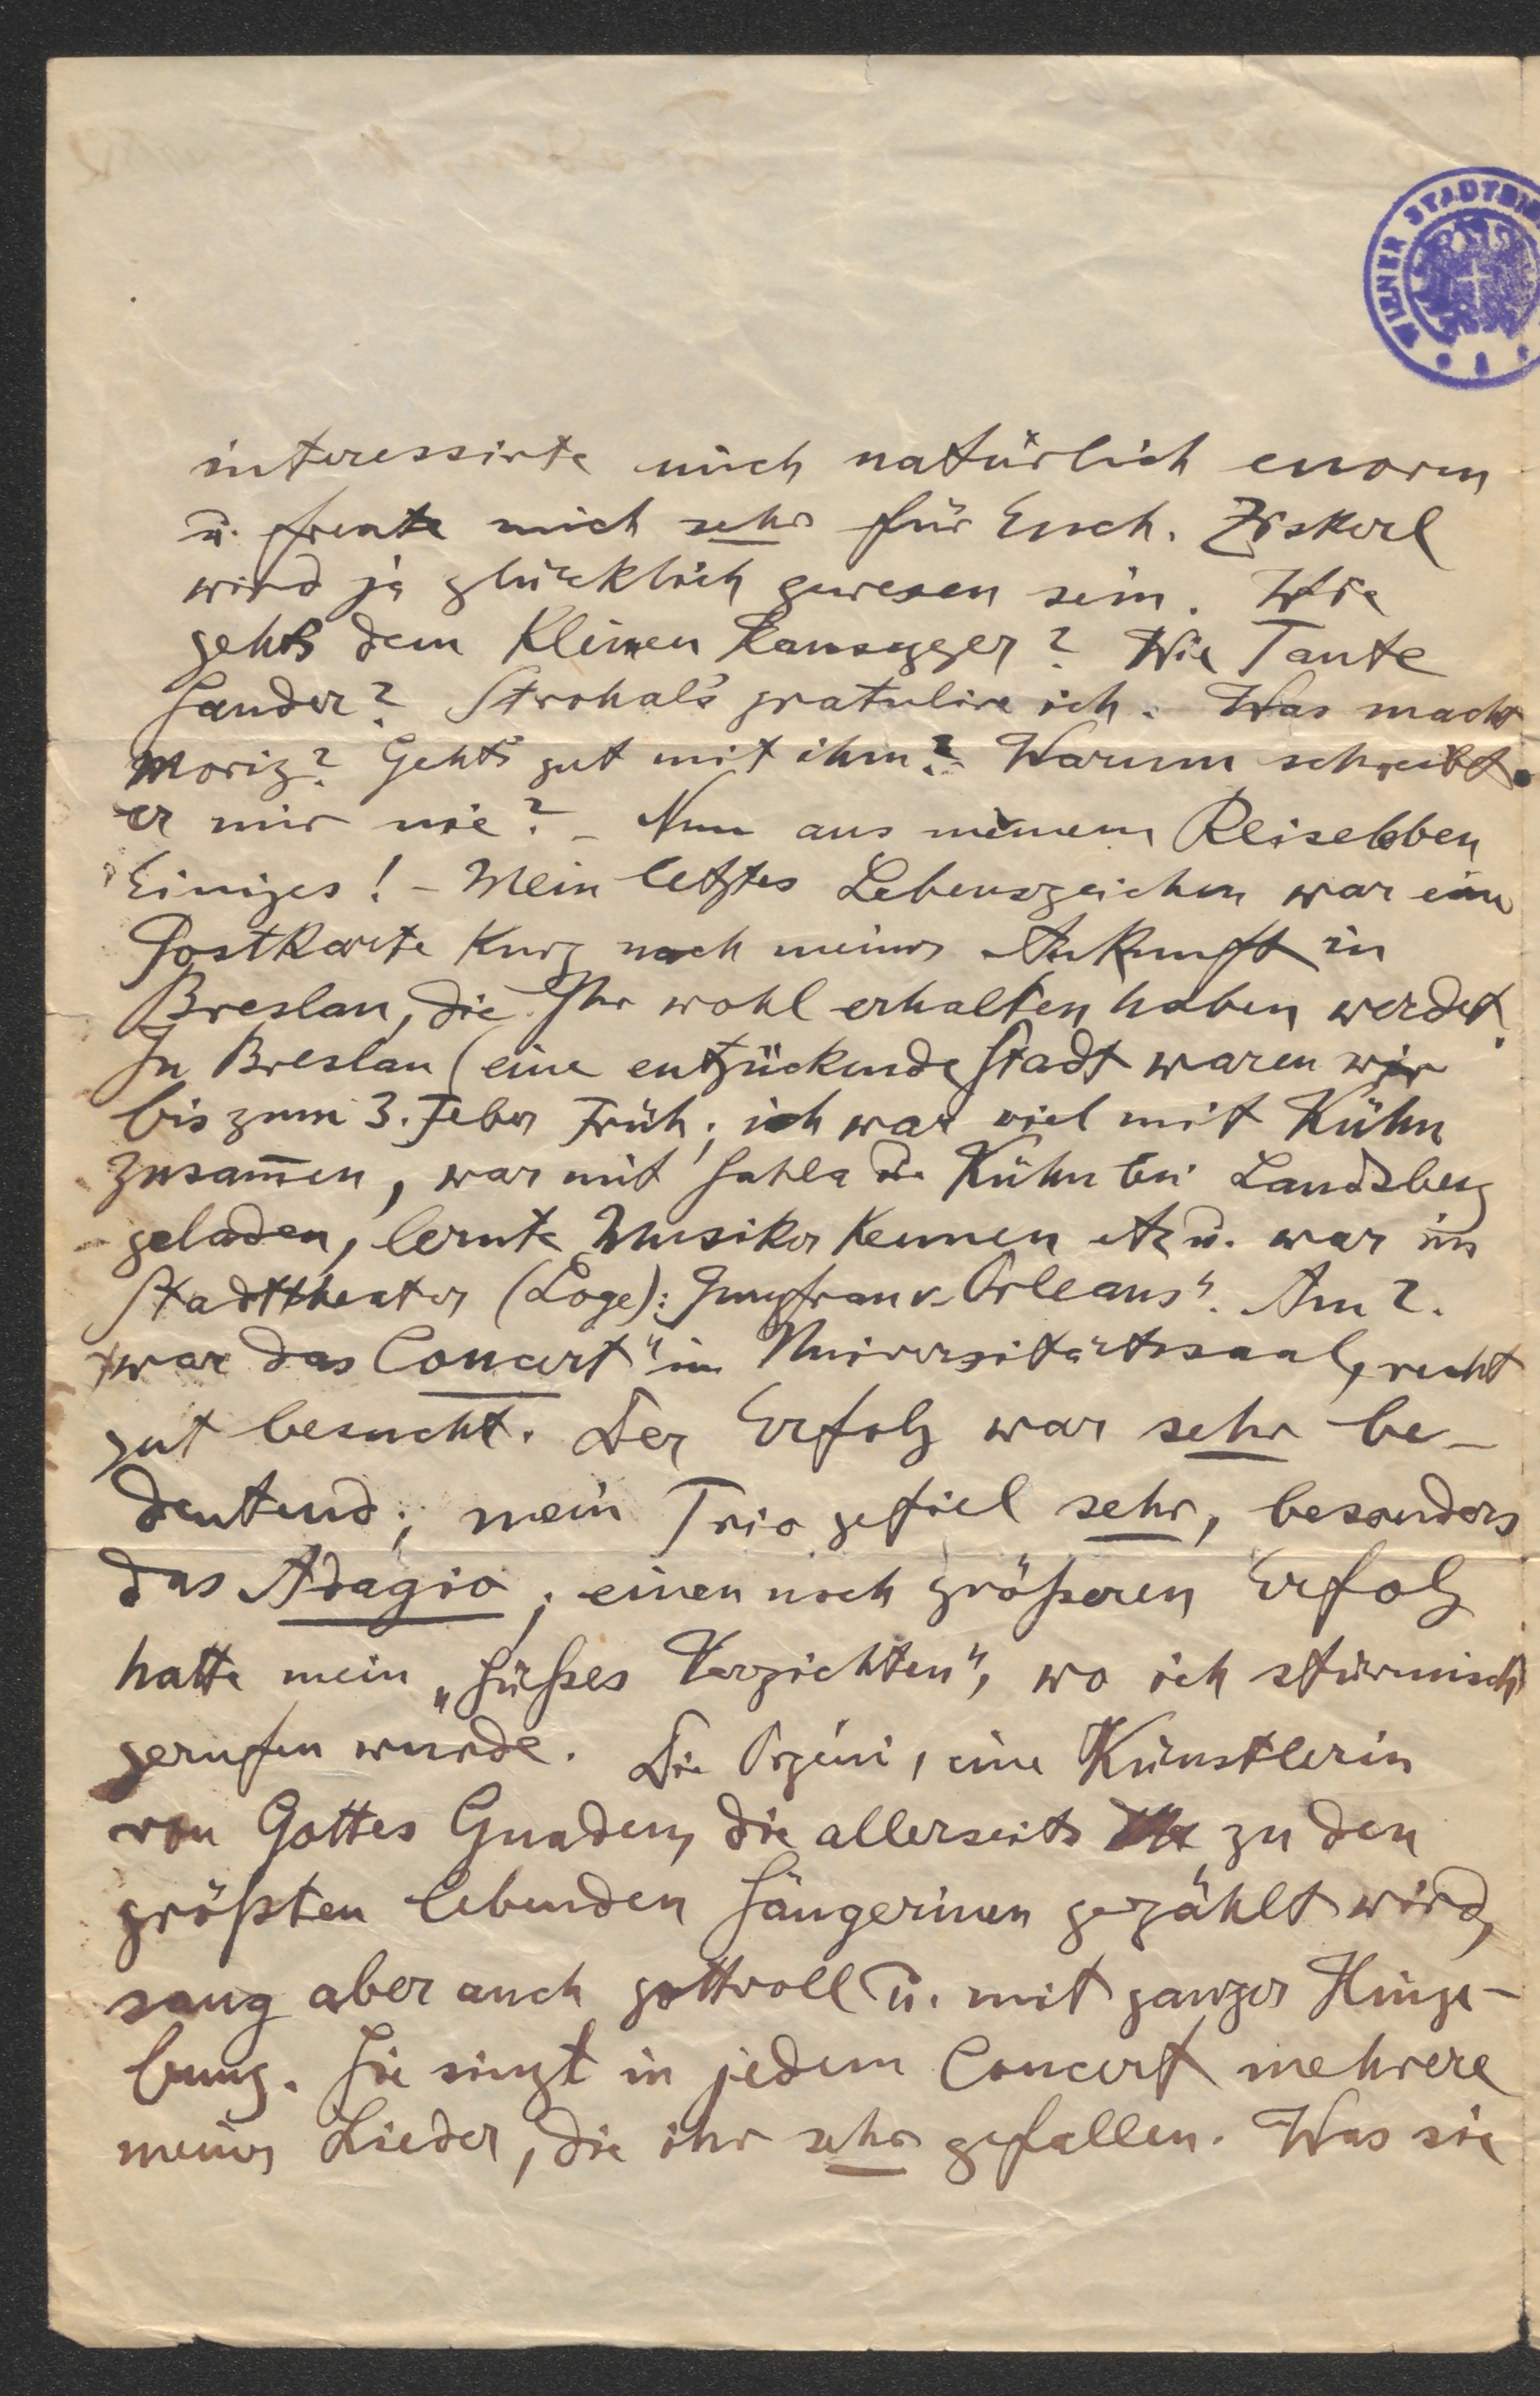 WIENER STADTBI
interessirte mich natürlich enorm
u. freute mich sehr für Euch. Ziskerl
wird ja glücklich gewesen sein. Wie
gehts dem Kleinen Hausegger? Wie Tante
Sander? Strohal's gratulire ich. Was macht
Moriz? Geht's gut mit ihm? Warum schreibt
er mir nie? – Nun aus meinem Reiseleben
Einiges! – Mein letztes Lebenszeichen war eine
Postkarte kurz nach meiner Ankunft in
Breslau, die Ihr wohl erhalten haben werdet.
In Breslau (eine entzückende Stadt waren wir
bis zum 3. Feber Früh; ich war viel mit Kühn
zusam̅en, war mit Sahla u. Kühn bei Landsberg
geladen, lernte Musiker kennen etz u. war im
Stadttheater (Loge): Jungfrau v. Orleans". Am 2.
war das Concert" im Universitätssaal, recht
gut besucht. Der Erfolg war sehr be-
deutend; mein Trio gefiel sehr, besonders
das Adagio; einen noch größeren Erfolg
hatte mein „Süßes Verzichten", wo ich stürmisch
gerufen wurde. Die Orgéni, eine Künstlerin
von Gottes Gnaden, die allerseits zu den
größten lebenden Sängerinen gezählt wird,
sang aber auch gottvoll u. mit ganzer Hinge-
bung. Sie singt in jedem Concert mehrere
meiner Lieder, die ihr sehr gefallen. Was sie